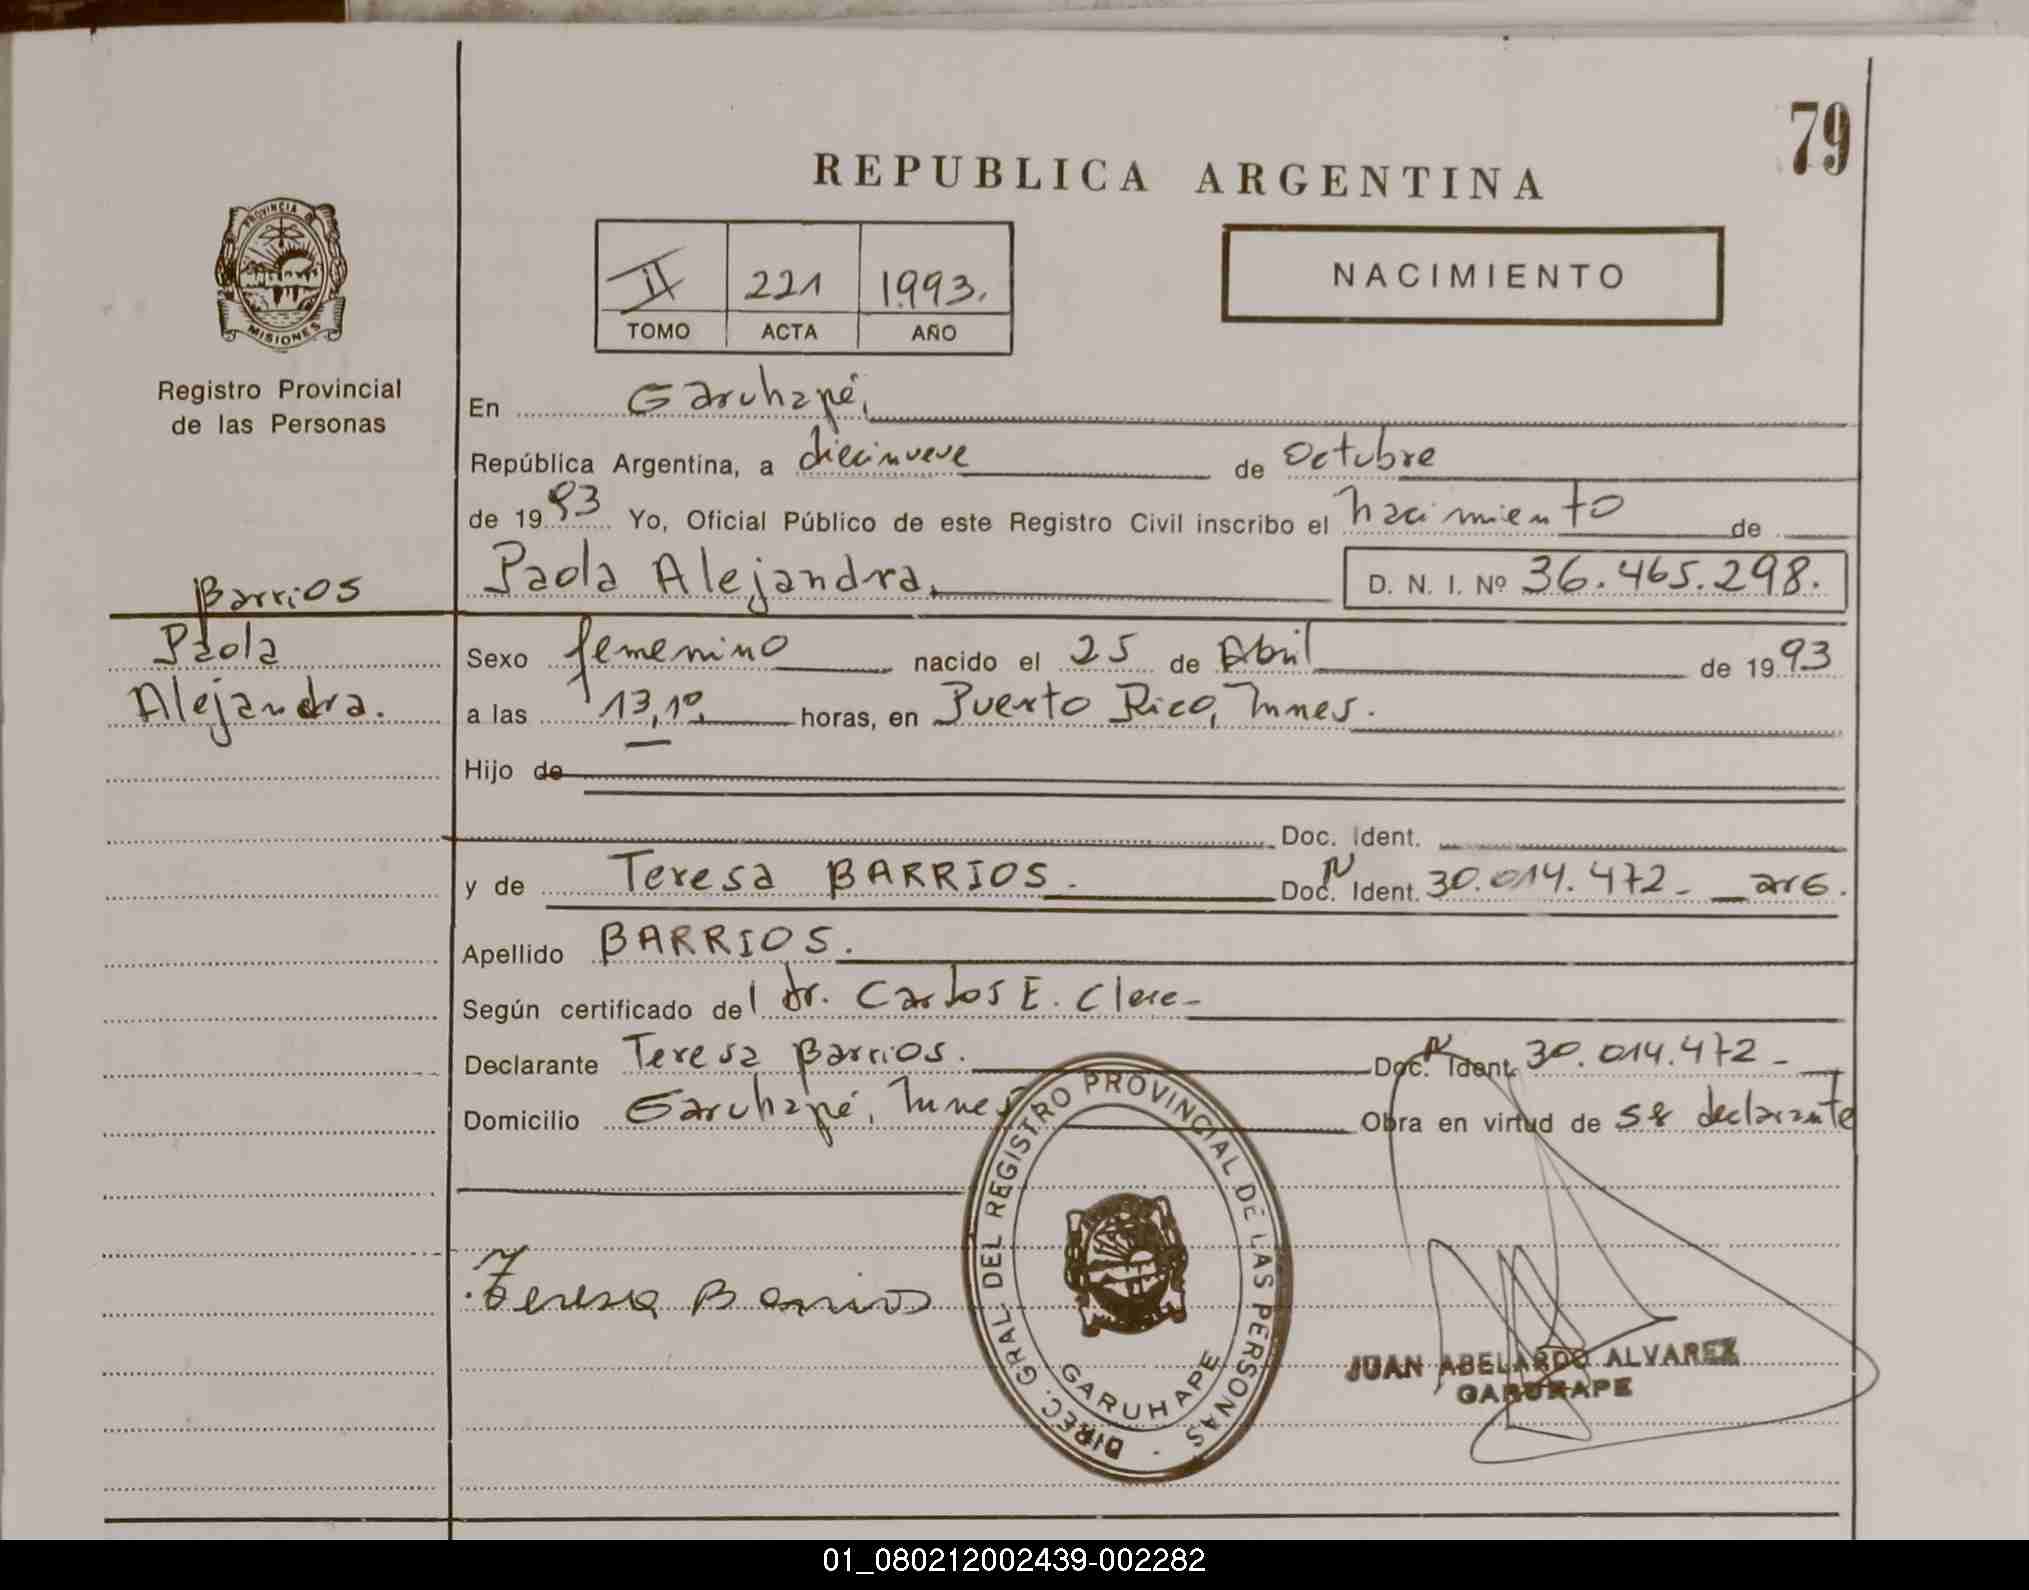 79
REPUBLICA ARGENTINA
PROVINCIA DE
MISIONES
Registro Provincial
de las Personas
II 221 1993.
TOMO ACTA AÑO
NACIMIENTO
En Garuhapé,
República Argentina, a diecinueve de Octubre
de 1993 Yo, Oficial Público de este Registro Civil inscribo el nacimiento de
Paola Alejandra. D. N. I. Nº 36.465.298.
Barrios
Paola
Alejandra.
Sexo femenino nacido el 25 de Abril de 1993
a las 13,10 horas, en Puerto Rico, Mnes.
Hijo de
Doc. Ident.
y de Teresa BARRIOS. Doc. N Ident. 30.014.472 - arg.
Apellido BARRIOS.
Según certificado del dr. Carlos E.
Declarante Teresa Barrios. Doc. N Ident. 30.014.472 -
Domicilio Garuhapé, Mnes Obra en virtud de ser declarante
Teresa Barrios
DIREC. GRAL DEL REGISTRO PROVINCIAL DE LAS PERSONAS -
GARUHAPE
JUAN ABELARDO ALVAREZ
GARUHAPE
01_080212002439-002282